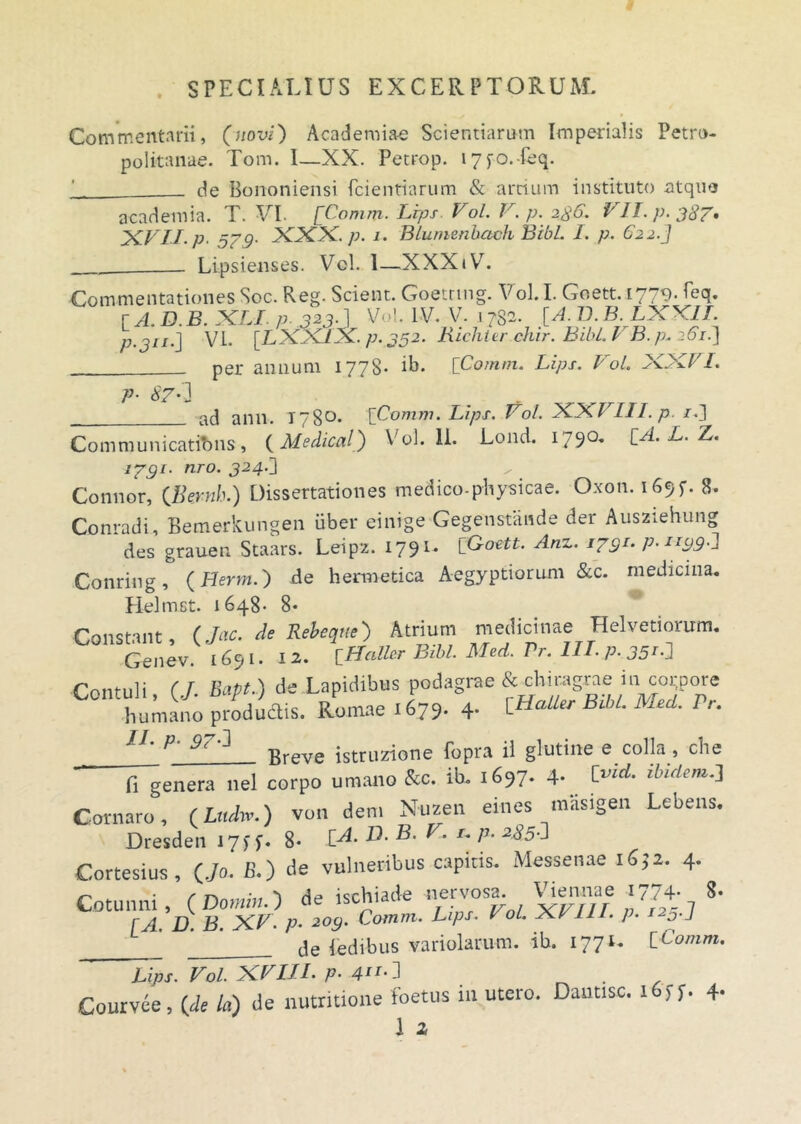 SPECIALIUS EXCERPTORUM.
Commentarii, (novi) Academiae Scientiarum Imperialis Petro-
politanae. Tom. I—XX. Petrop. 1750. seq.
________ de Bononiensi scientiarum & artium instituto atque
academia. T. VI. [Comm. Lips. Vol. V. p. 286. VII. p. 387.
XVII. p. 579. XXX. p. 1. Blumenbach Bibl. I. p. 622.]
________ Lipsienses. Vol. I—XXXIV.
Commentationes Soc. Reg. Scient. Goetting. Vol. I. Goett. 1779. seq.
[A. D. B. XLI. p. 323.] Vol. IV. V. 1782. [A. D. B. LXXII.
p. 311.] VI. [LXXIX. p. 352. Richter chir. Bibl. VB. p. 261.]
________ per annum 1778. ib. [Comm. Lips. Vol. XXVI.
p. 87.]
________ ad ann. 1780. [Comm. Lips. Vol. XXVIII. p. 1.]
Communications, (Medical) Vol. II. Lond. 1790. [A. L. Z.
1791. nro. 324.]
Connor, (Bernh.) Dissertationes medico-physicae. Oxon. 1695. 8.
Conradi, Bemerkungen über einige Gegenstände der Ausziehung
des grauen Staars. Leipz. 1791. [Goett. Anz. 1791. p. 1199.]
Conring, (Herm.) de hermetica Aegyptiorum &c. medicina.
Helmst. 1648. 8.
Constant, (Jac. de Rebeque) Atrium medicinae Helvetiorum.
Genev. 1691. 12. [Haller Bibl. Med. Pr. III. p. 351.]
Contuli, (J. Bapt.) de Lapidibus podagrae & chiragrae in corpore
humano productis. Romae 1679. 4. [Haller Bibl. Med. Pr.
II. p. 97.]
________ Breve istruzione sopra il glutine e colla, che
si genera nel corpo umano &c. ib. 1697. 4. [vid. ibidem.]
Cornaro, (Ludw.) von dem Nuzen eines mäsigen Lebens.
Dresden 1755. 8. [A. D. B. V. 1. p. 285.]
Cortesius, (Jo. B.) de vulneribus capitis. Messenae 1632. 4.
Cotunni, (Domin.) de ischiade nervosa. Viennae 1774. 8.
[A. D. B. XV. p. 209. Comm. Lips. Vol. XVIII. p. 125.]
________ ________ de sedibus variolarum. ib. 1771. [Comm.
Lips. Vol. XVIII. p. 411.]
Courvée, (de la) de nutritione foetus in utero. Dantisc. 1655. 4.
l 2